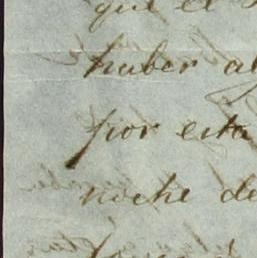 que el
haber al
por esta
noche de